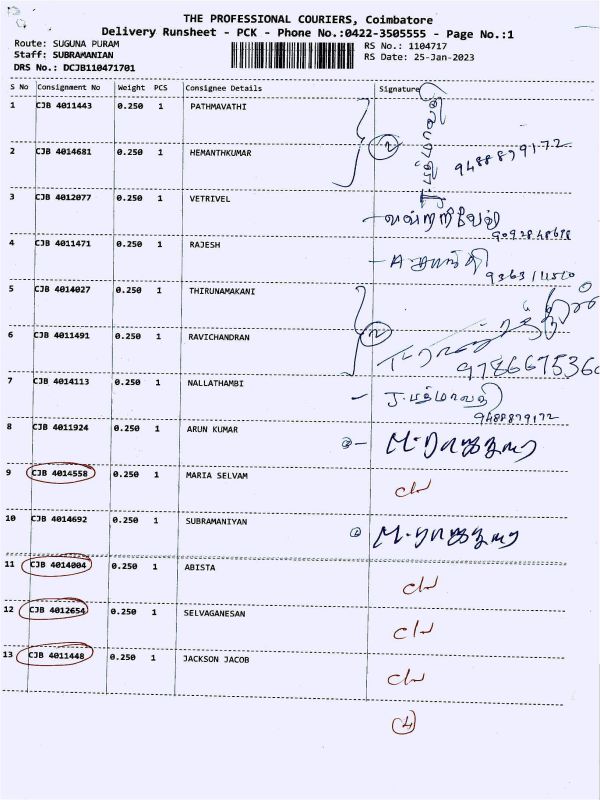 THE PROFESSIONAL COURIERS, Coimbatore
Delivery Runsheet - PCK - Phone No.:0422-3505555 - Page No.:1
Route: SUGUNA PURAM
RS No.: 1104717
Staff: SUBRAMANIAN
RS Date: 25-Jan-2023
DRS No.: DCJB110471701
S No Consignment No Weight PCS Consignee Details Signature
1 CJB 4011443 0.250 1 PATHMAVATHI
2 CJB 4014681 0.250 1 HEMANTHKUMAR 2 9488879172
3 CJB 4012077 0.250 1 VETRIVEL
9092848698
4 CJB 4011471 0.250 1 RAJESH
5 CJB 4014027 0.250 1 THIRUNAMAKANI
6 CJB 4011491 0.250 1 RAVICHANDRAN 2
9786675360
7 CJB 4014113 0.250 1 NALLATHAMBI J. பத்மாவதி
9488879172
8 CJB 4011924 0.250 1 ARUN KUMAR
9 CJB 4014558 0.250 1 MARIA SELVAM
10 CJB 4014692 0.250 1 SUBRAMANIYAN
11 CJB 4014004 0.250 1 ABISTA
12 CJB 4012654 0.250 1 SELVAGANESAN
13 CJB 4011448 0.250 1 JACKSON JACOB
4